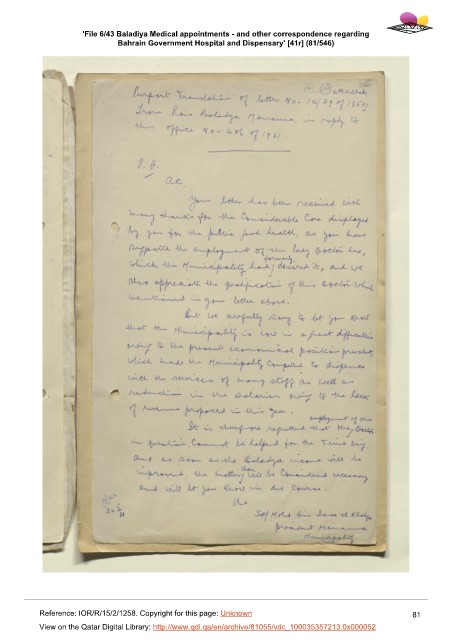 'File 6/43 Baladiya Medical appointments - and other correspondence regarding
Bahrain Government Hospital and Dispensary' [41r] (81/546)
Purport Translation of letter No - 14/29 of
from Rais Baladya Manama in reply to
this office No - 408 of
P. A.
Your letter has been received with
many thanks for the Considerable Care displayed
by you for the public good health, As you have
the employment of the lady Doctor here,
formerly
which the Municipality had desired it, and we
also appreciate the qualification of this Doctor which
mentioned in your letter above.
But we awfully sorry to let you know
that the Municipality is now in a great difficulties
owing to the present economical position present,
which made the Municipality Compelled to dispense
with the services of many staff as well as
reduction in the salaries owing to the lack
of revenue proposed in this year.
employment of the
It is therefore regretted that the Doctor
in question Cannot be helped for the Time being.
and as soon as the Baladya income will be
improved, the matter will be Considered necessary
then
and will let you know in due Course.
Sd/ Mohd bin Isa al Khalifa
President Manama
Municipality
Reference: IOR/R/15/2/1258. Copyright for this page: Unknown
81
View on the Qatar Digital Library: http://www.qdl.qa/en/archive/81055/vdc_100035357213.0x000052